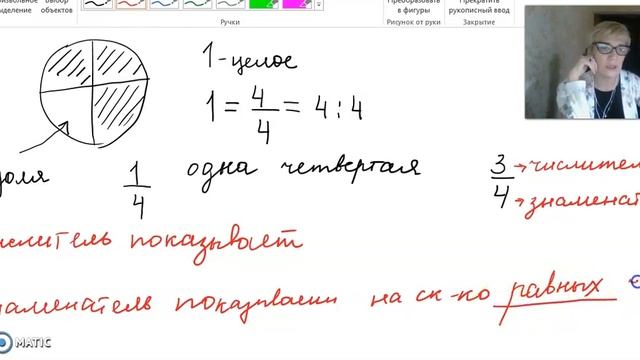 выделение объектов
Ручки
Преобразовать в фигуры
Рисунок от руки
Прекратить рукописный ввод
Закрытие
1-целое
1 = 4/4 = 4:4
доля 1/4 одна четвертая
3/4 → числител
→ знаменат
ислитель показывает
наменатель показывает на ск-ко равных
MATIC